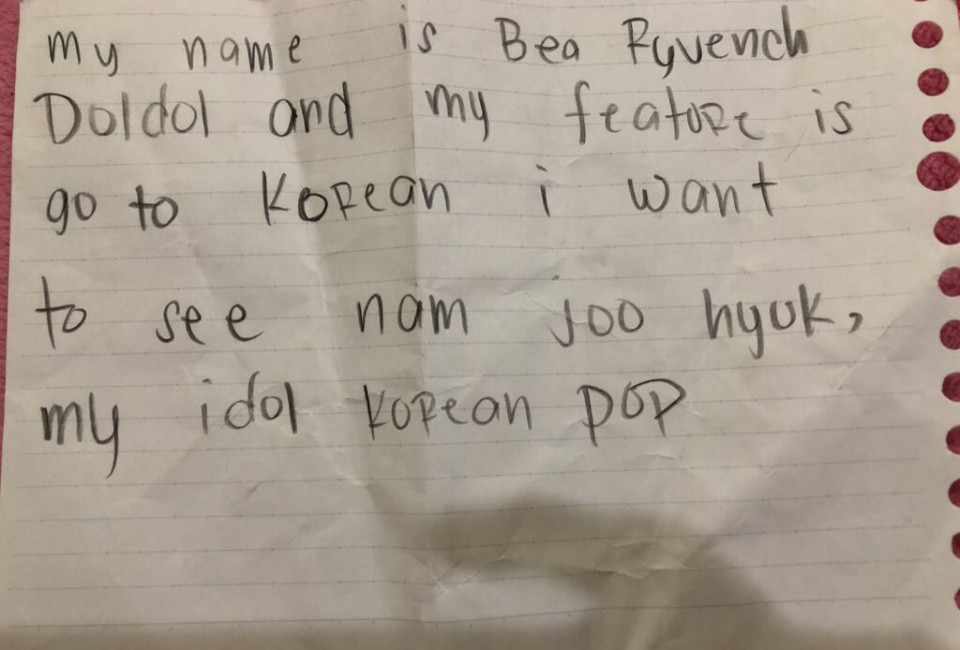 my name is Bea Ryvench
Doldol and my featore is
go to Korean i want
to see nam joo hyuk,
my idol korean pop